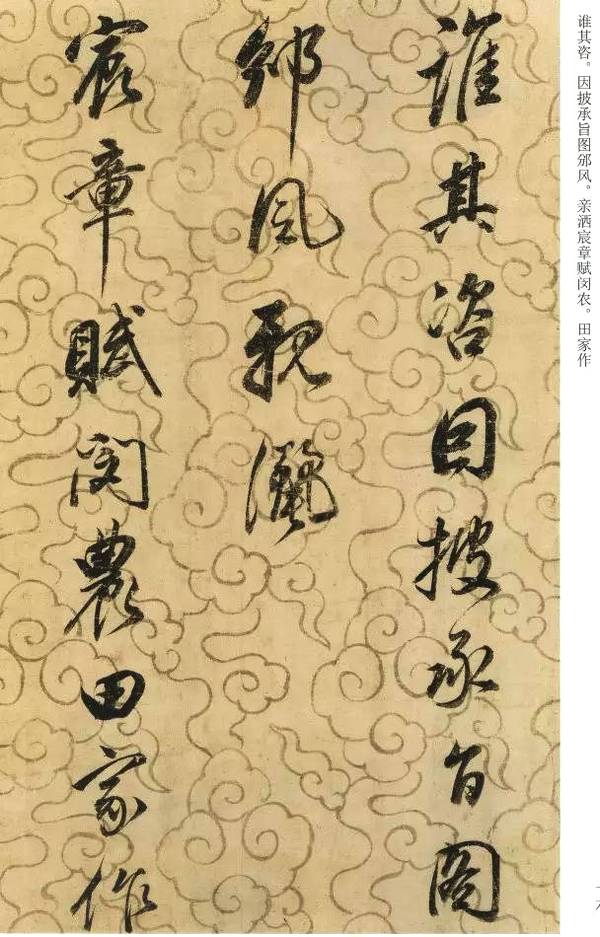 誰其咨因披承旨圖
邠風親灑
宸章賦閔農田家作
谁其咨。因披承旨图邠风。亲洒宸章赋闵农。田家作